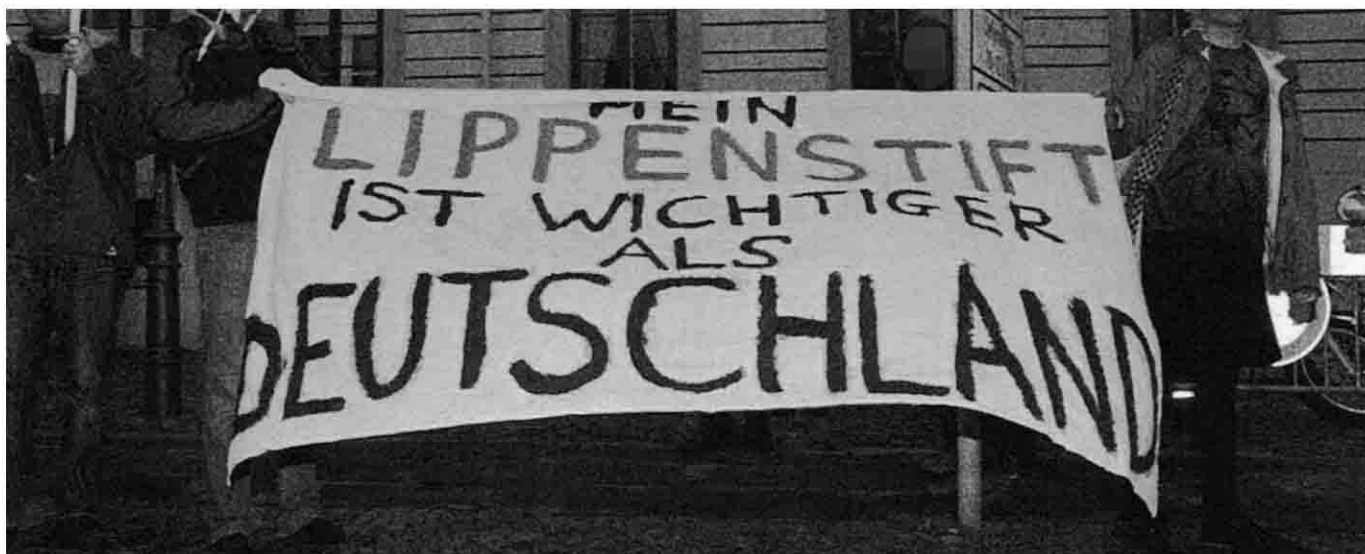 MEIN
LIPPENSTIFT
IST WICHTIGER
ALS
DEUTSCHLAND